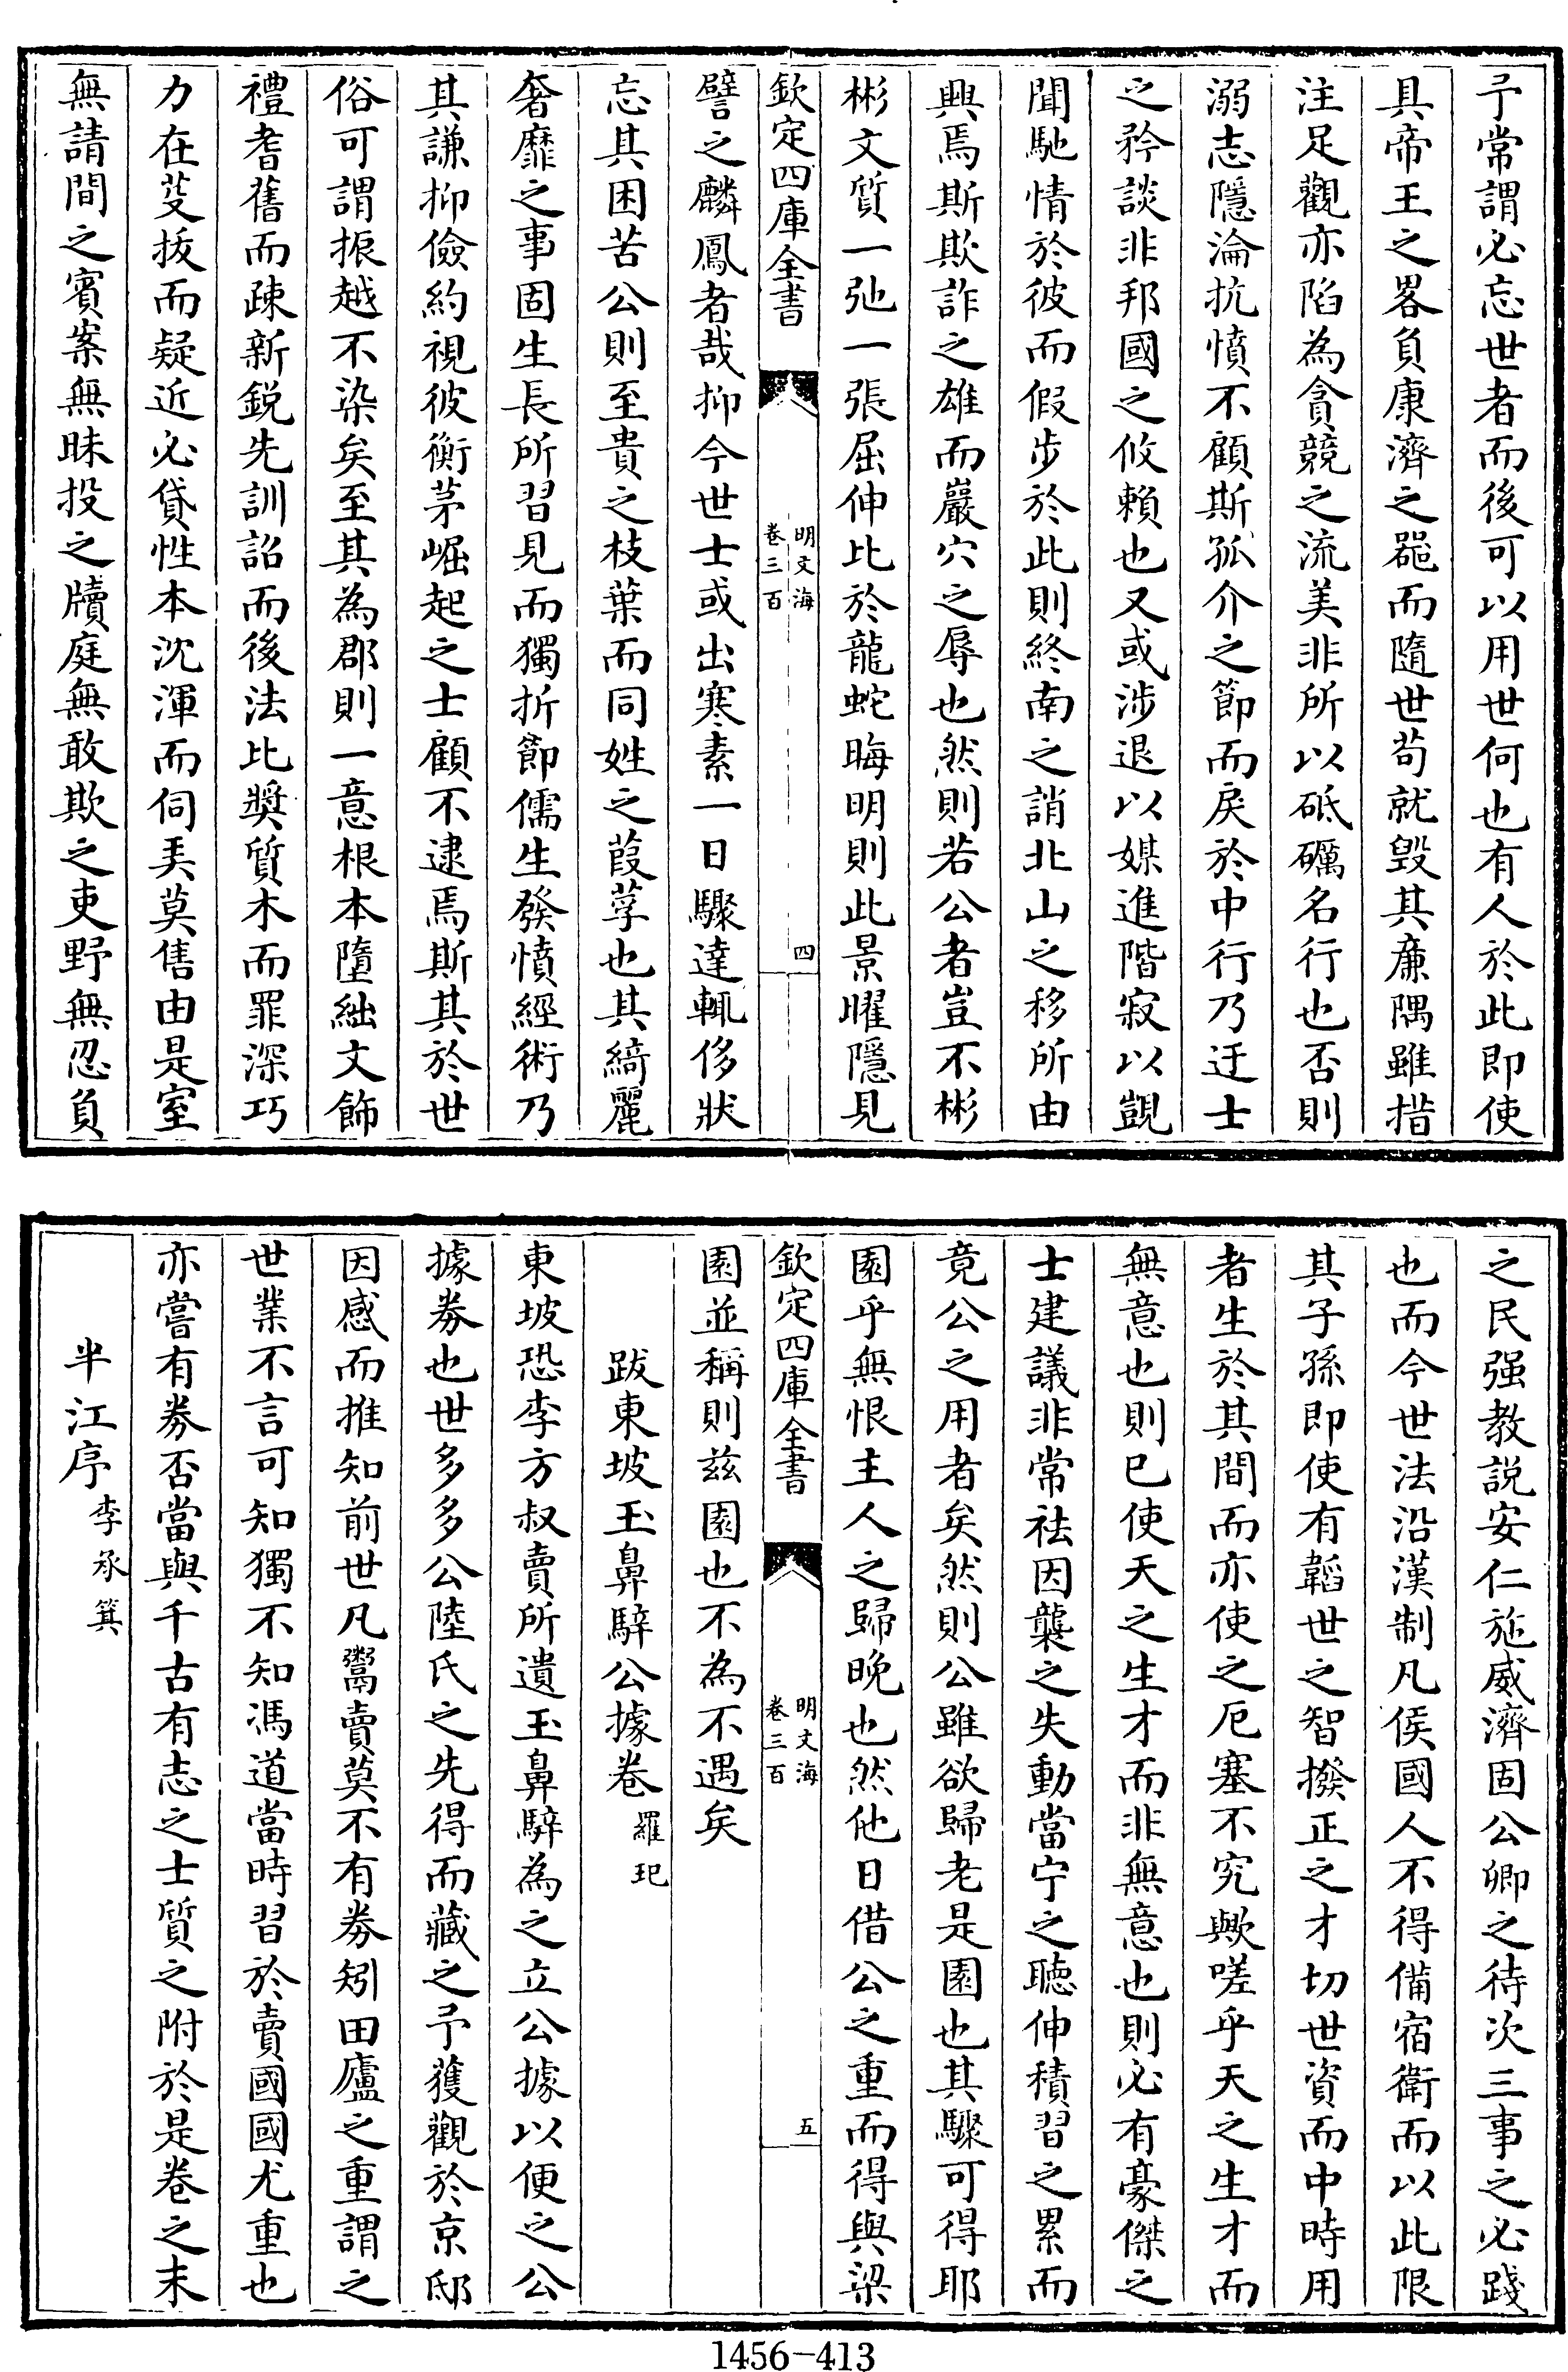 予常謂必忘世者而後可以用世何也有人於此即使
具帝王之畧負康濟之噐而隨世苟就毁其亷隅雖措
注足觀亦陷為貪競之流美非所以砥礪名行也否則
溺志隱淪抗憤不顧斯孤介之節而戾於中行乃迂士
之矜談非邦國之攸賴也又或涉退以媒進階寂以覬
聞馳情於彼而假步於此則終南之誚北山之移所由
興焉斯欺詐之雄而巖穴之辱也然則若公者豈不彬
彬文質一弛一張屈伸比於龍蛇晦明則此景曜隱見
欽定四庫全書
明文海
卷三百
四
譬之麟鳳者哉抑今世士或出寒素一日驟達輒侈狀
忘其困苦公則至貴之枝葉而同姓之葭莩也其綺麗
奢靡之事固生長所習見而獨折節儒生發憤經術乃
其謙抑儉約視彼衡茅崛起之士顧不逮焉斯其於世
俗可謂振越不染矣至其為郡則一意根本墮絀文飾
禮耆舊而疎新鋭先訓詔而後法比奬質木而罪深巧
力在芟拔而疑近必貸性本沈渾而伺美莫售由是室
無請間之賓案無昧投之牘庭無敢欺之吏野無忍負
之民强教説安仁施威濟固公卿之待次三事之必踐
也而今世法沿漢制凡侯國人不得備宿衛而以此限
其子孫即使有韜世之智撥正之才切世資而中時用
者生於其間而亦使之厄塞不究歟嗟乎天之生才而
無意也則已使天之生才而非無意也則必有豪傑之
士建議非常祛因襲之失動當宁之聽伸積習之累而
竟公之用者矣然則公雖欲歸老是園也其驟可得耶
園乎無恨主人之歸晩也然他日借公之重而得與梁
欽定四庫全書
明文海
卷三百
五
園並稱則兹園也不為不遇矣
跋東坡玉鼻騂公據卷 羅玘
東坡恐李方叔賣所遺玉鼻騂為之立公據以便之公
據劵也世多多公陸氏之先得而藏之予獲觀於京邸
因感而推知前世凡鬻賣莫不有劵矧田廬之重謂之
世業不言可知獨不知馮道當時習於賣國國尤重也
亦嘗有劵否當與千古有志之士質之附於是卷之末
半江序 李承箕
1456-413